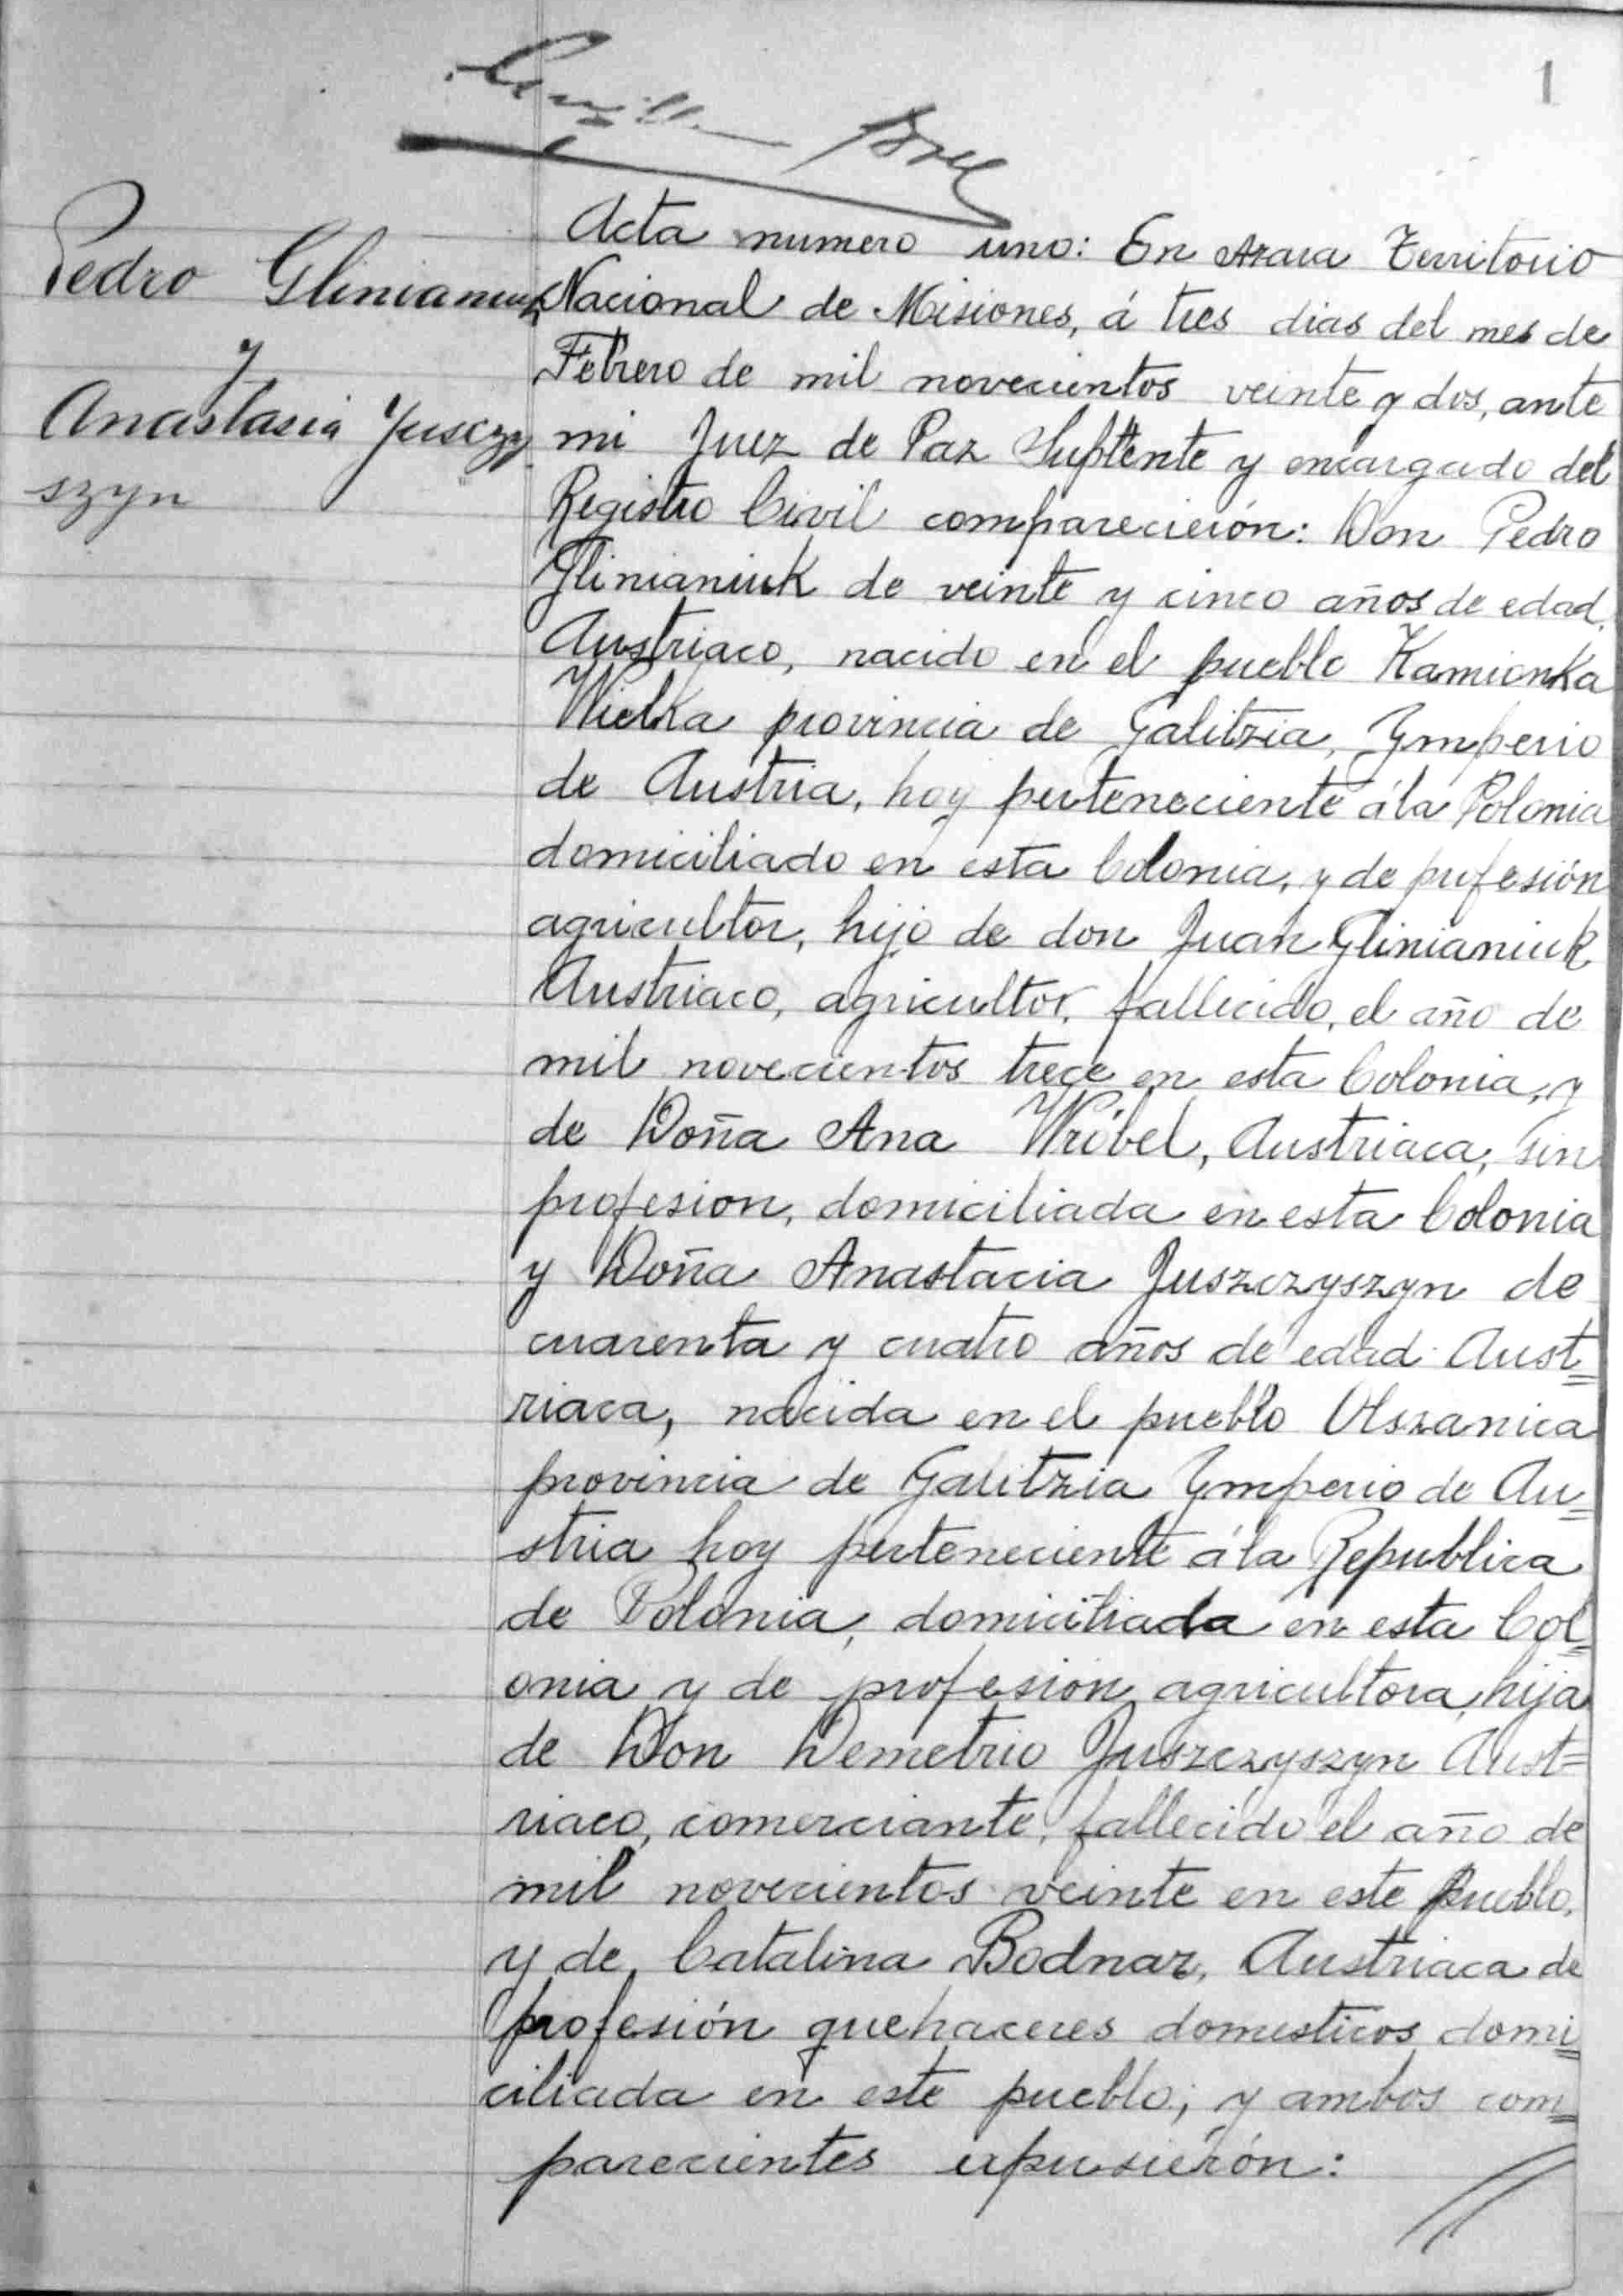 1
Pedro Glinianiuk
y
Anastasia Jusczy
szyn
Acta numero uno: En Azara Territorio
Nacional de Misiones, á tres dias del mes de
Febrero de mil novecientos veinte y dos, ante
mi Juez de Paz Suplente y encargado del
Registro Civil compareciéron: Don Pedro
Glinianiuk de veinte y cinco años de edad.
Austriaco, nacido en el pueblo Kamionka
Wielka provincia de Galitzia, Ymperio
de Austria, hoy perteneciente á la Polonia
domiciliado en esta Colonia, y de profesión
agricultor, hijo de don Juan Glinianiuk
Austriaco, agricultor, fallecido, el año de
mil novecientos trece en esta Colonia, y
de Doña Ana Wribel, Austriaca, sin
profesion, domiciliada en esta Colonia
y Doña Anastacia Juszczyszyn de
cuarenta y cuatro años de edad Aust=
riaca, nacida en el pueblo Olszanica
provincia de Galitzia Ymperio de Au=
stria hoy perteneciente á la Republica
de Polonia, domiciliada en esta Col=
onia y de profesión agricultora, hija
de Don Demetrio Juszczyszyn Aust=
riaco, comerciante, fallecido el año de
mil novecientos veinte en este Pueblo,
y de Catalina Bodnar, Austriaca de
profesión quehaceres domesticos domi=
ciliada en este pueblo; y ambos com=
parecientes expusierón: